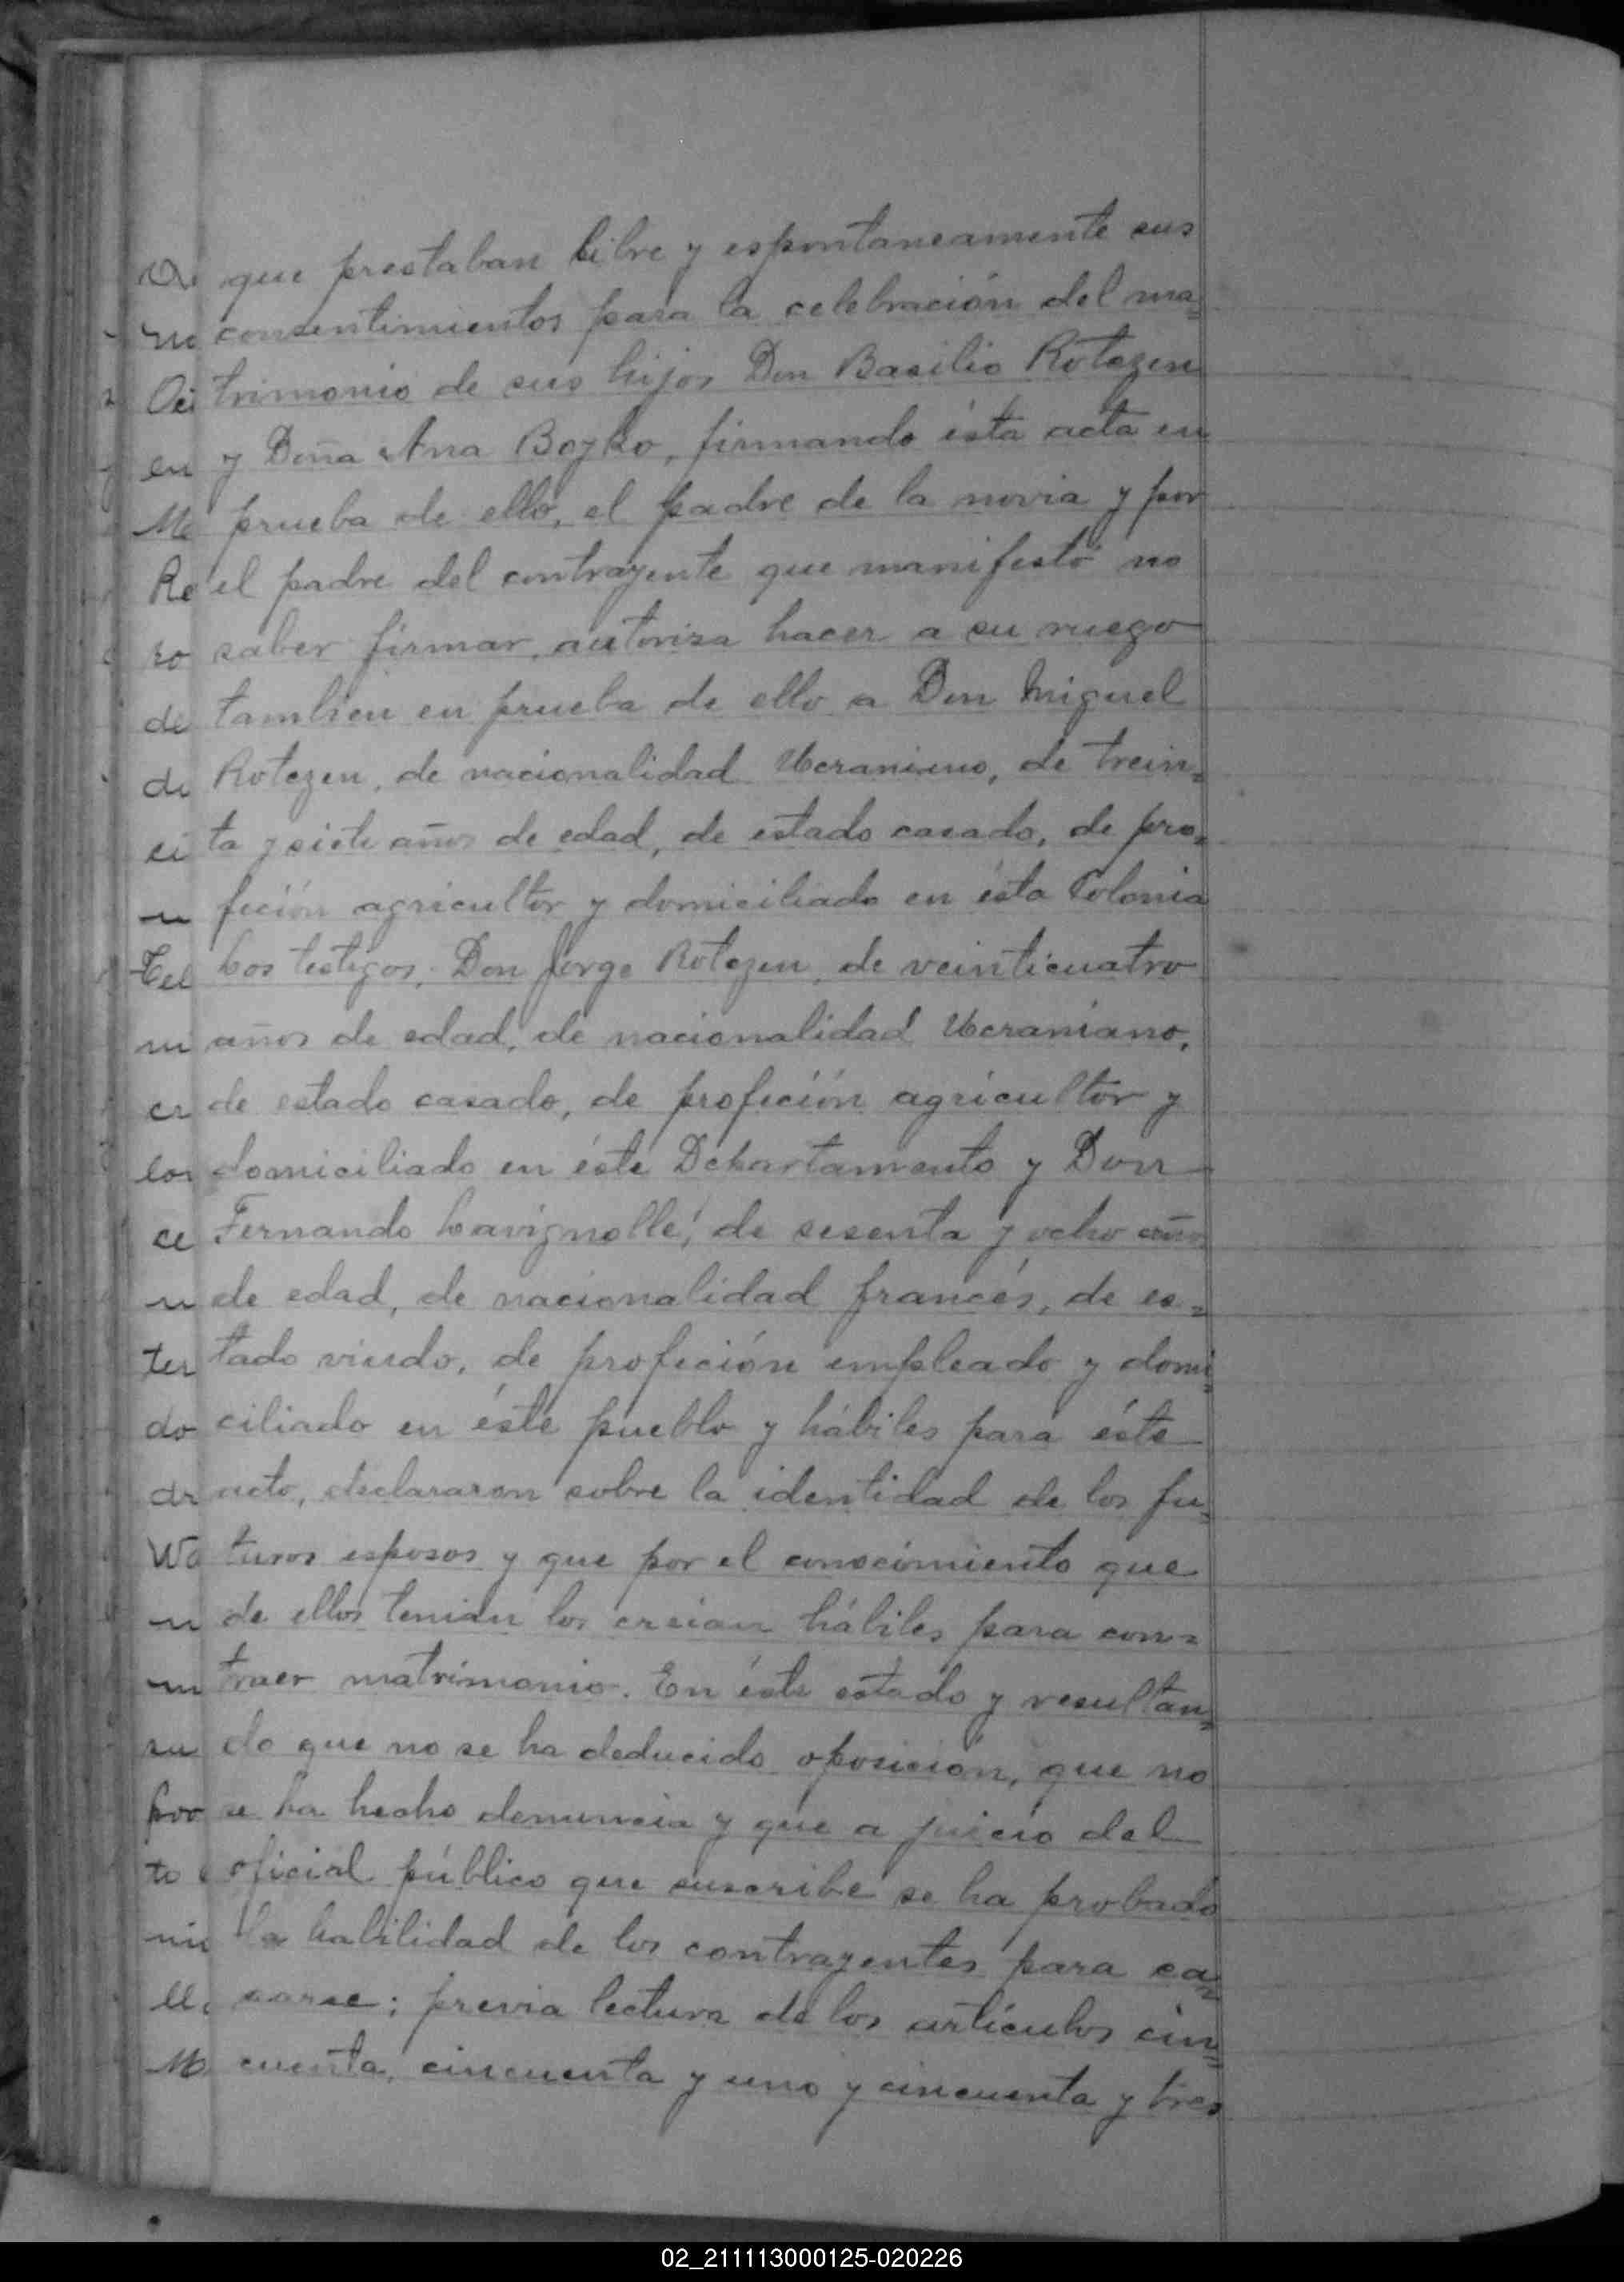 que prestaban libre y espontaneamente sus
consentimientos para la celebración del ma=
trimonio de sus hijos Don Basilio Rotczen
y Doña Ana Boyko, firmando ésta acta en
prueba de ello, el padre de la novia y por
el padre del contrayente que manifestó no
saber firmar, autoriza hacer a su ruego
tambien en prueba de ello a Don Miguel
Rotczen, de nacionalidad Ucraniano, de trein=
ta y siete años de edad, de estado casado, de pro=
feción agricultor y domiciliado en ésta Colonia
Los testigos, Don Jorge Rotczen, de veinticuatro
años de edad, de nacionalidad Ucraniano,
de estado casado, de profeción agricultor y
domiciliado en éste Departamento y Don
Fernando Lavignolle, de sesenta y ocho años
de edad, de nacionalidad francés, de es=
tado viudo, de profeción empleado y domi=
ciliado en éste pueblo y hábiles para éste
acto, declararon sobre la identidad de los fu=
turos esposos y que por el conocimiento que
de ellos tenian los creian hábiles para con=
traer matrimonio. En éste estado y resultan=
do que no se ha deducido oposición, que no
se ha hecho denuncia y que a juicio del
oficial público que suscribe se ha probado
la habilidad de los contrayentes para ca=
sarse; previa lectura de los artículos cin=
cuenta, cincuenta y uno y cincuenta y tres
02_211113000125-020226